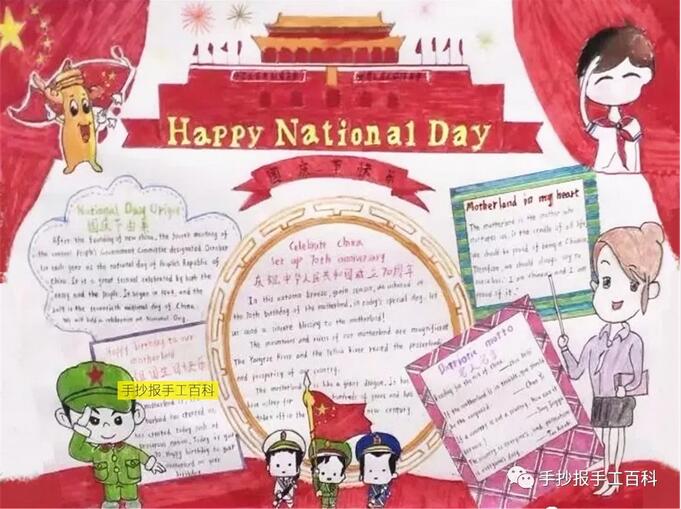 Happy National Day
国庆节快乐
National Day Origin
国庆节由来
After the founding of new china, the fourth meeting of
the central People's Government Committee designated October
1st each year as the national day of People's Republic of
China. It is a great festival celebrated by both the
army and the people. It began in 1949, and the
is the seventieth national day of China.
We will hold a celebration on National Day.
Celebrate China
set up 70th anniversary
庆祝中华人民共和国成立70周年
In this autumn breeze, gentle season, we ushered in
the 70th birthday of the motherland, in today's special day, let
us send a sincere blessing to the motherland!
The mountains and rivers of our motherland are magnificent
The Yangtze River and the Yellow River record the
and prosperity of my country.
The motherland like a giant dragon, is
hundreds of years and has
take off in the new century
Motherland in my heart
The motherland is the mother who
nurtures us, is the cradle of all life
We should be proud of being a Chinese
Therefore, we should always say to
ourselves: I am chinese, and I am
proud of it.
Happy birthday to our
motherland
祖国生日快乐
手抄报手工百科
motherland has created us,
has created today
prosperous nation. Today is your
Happy birthday to you
motherland
birthday
Patriotic motto
名人名言
If the motherland is in trouble,
be the vanguard.
Chen Yi
手抄报手工百科